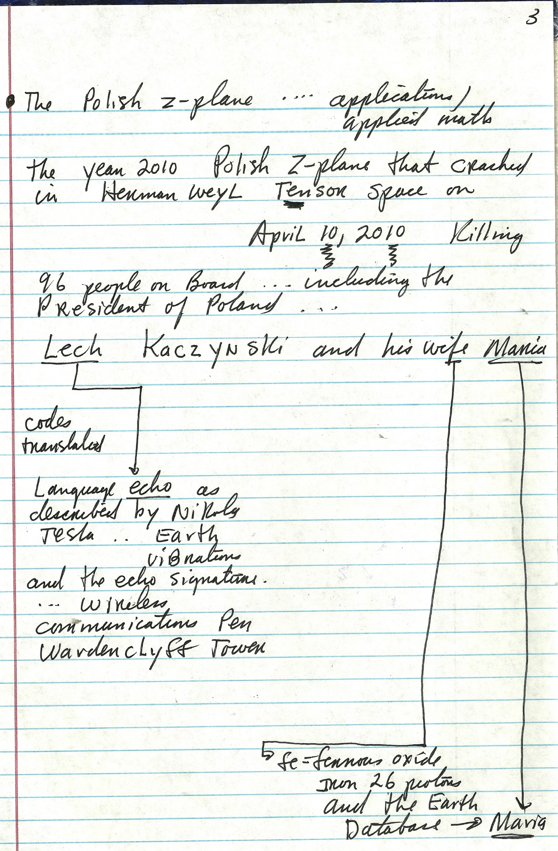 3
• The Polish z-plane .... applications/
applied math
the year 2010 Polish Z-plane that crashed
in Herman Weyl Tensor Space on
April 10, 2010 Killing
96 people on Board ... including the
President of Poland ...
Lech Kaczynski and his wife Maria
codes
translated
Language echo as
described by Nikola
Tesla .. Earth
vibrations
and the echo signature.
... wireless
communications Per
Wardenclyff Tower
fe = ferrous oxide
Iron 26 protons
and the Earth
Database → Maria